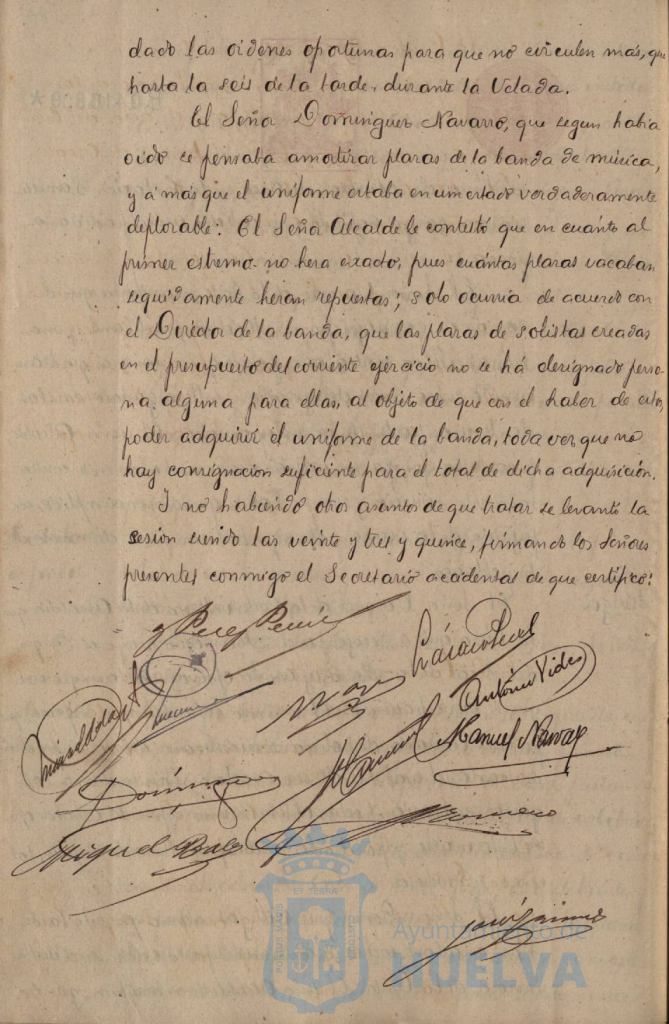 dado las oidenes oportunas para que no circulen más, que
hasta la seis de la tarde, durante la Velada.
El Señor Dominguez Navarro, que segun habia
oido se pensaba amortizar plazas de la banda de música,
y á más que el uniforme estaba en un estado verdaderamente
deplorable. El Señor Alcalde le contestó que en cuánto al
primer estremo no hera exacto, pues cuántas plazas vacaban
seguidamente heran repuestas; solo ocurria de acuerdo con
el Director de la banda, que las plazas de solistas creadas
en el presupuesto del corriente ejercicio no se há designado perso-
na alguna para ellas, al objeto de que con el haber de estos,
poder adquirir el uniforme de la banda, toda vez que no
hay consignación suficiente para el total de dicha adquisición.
I no habiendo otros asuntos de que tratar se levantó la
sesión siendo las veinte y tres y quince, firmando los Señores
presentes conmigo el Secretario accidental de que certifico:
Antonio Vides
Manuel Navarro
Domínguez
Romero
Miguel Báez
Ayuntamiento de
HUELVA